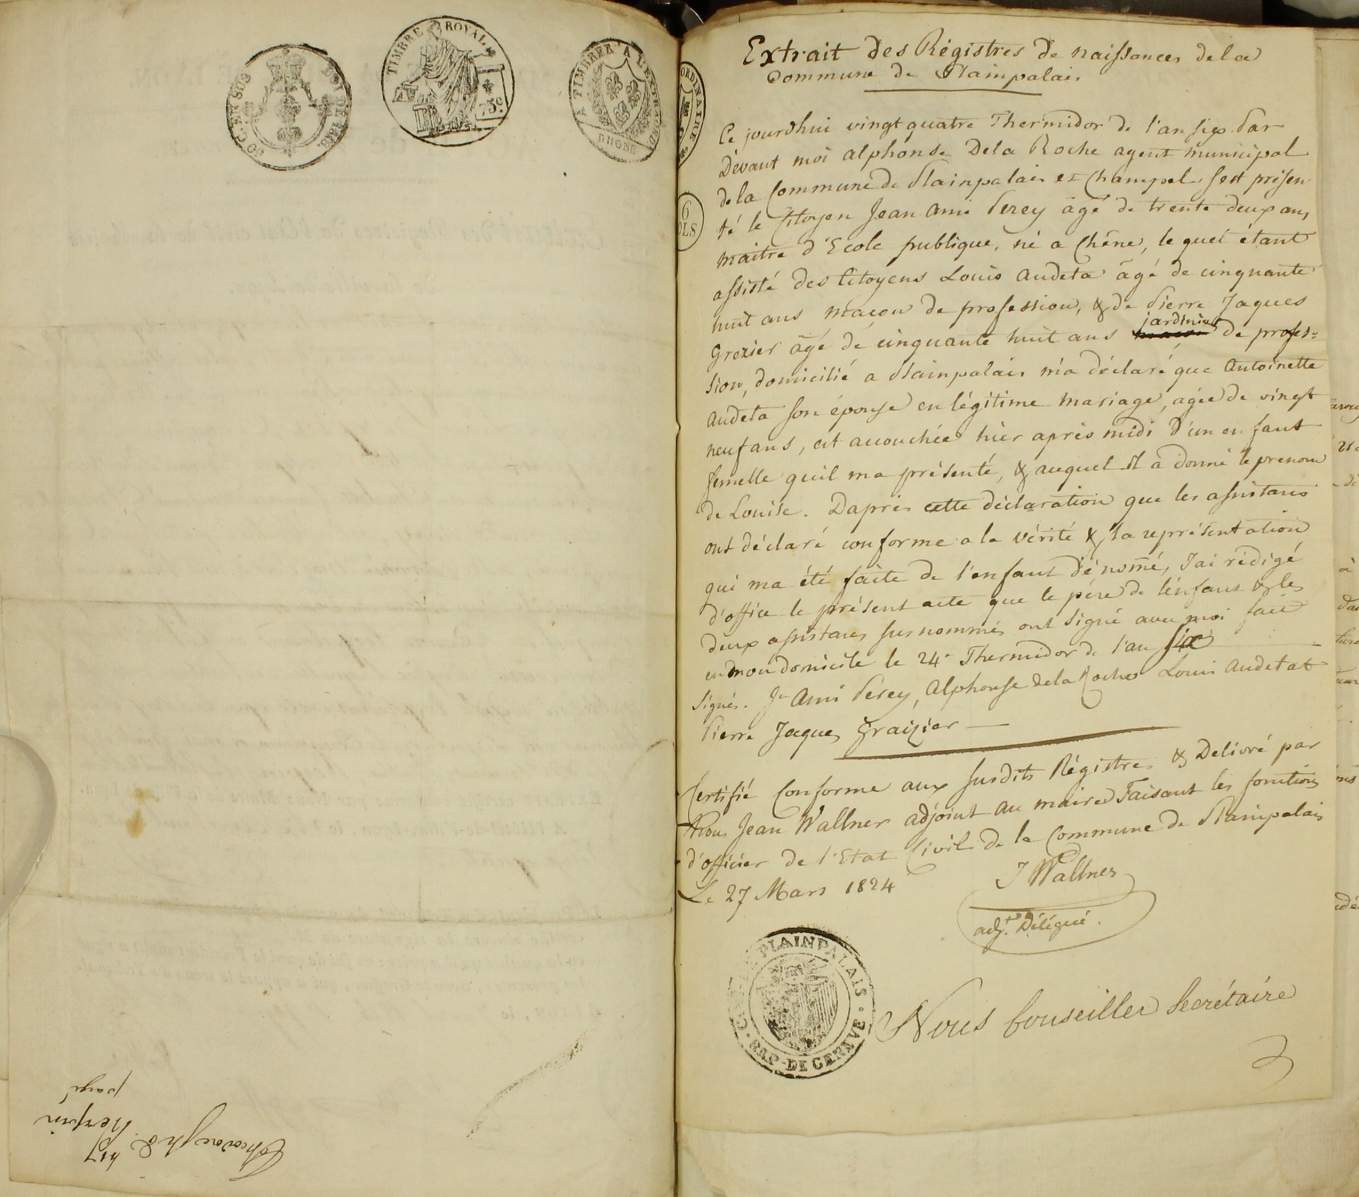 50 C. EN SUS
TIMBRE ROYAL
75 C.
A TIMBRER A L'EXTRAORD.
RHONE
6
OLS
Extrait des Régistres de naissances de la
Commune de Plainpalais
Ce jourdhui vingt quatre Thermidor de l'an six. Par
Devant moi alphonse Dela Roche agent municipal
de la Commune de Plainpalais et Champel s'est présen-
té le Citoyen Jean Ami Perey âgé de trente deux ans
maitre d'Ecole publique, né a Chêne, lequel étant
assisté des Citoyens Louis Audeta âgé de cinquante
huit ans maçon de profession, & de Pierre Jaques
Grezier âgé de cinquante huit ans jardinier de profes=
sion, domicilié a Plainpalais m'a déclaré que Antoinette
Audeta son épouse en légitime mariage, agée de vingt
neuf ans, est accouchée hier après midi d'un enfant
femelle quil ma présenté, & auquel il a donné le prenom
de Louise. Daprès cette déclaration que les assistans
ont déclaré conforme a la vérité & la représentation
qui ma été faite de l'enfant dénomé, J'ai rédigé
d'office le présent acte que le père de l'enfant & les
deux assistans susnommés ont signé avec moi fait
en mon domicile le 24e Thermidor de l'an six
signés. Jn Ami Perey, Alphonse dela Roche Louis Audetat
Pierre Jaques Graizier
Certifié Conforme aux susdits Régistres & Délivré par
Nous Jean Wallner adjoint au maire faisant les fonctions
d'officier de l'Etat Civil de la Commune de Plainpalais
Le 27 Mars 1824
J Wallner
adjt. Délégué.
PLAINPALAIS
REP. DE GENEVE
Nous Conseiller Secrétaire